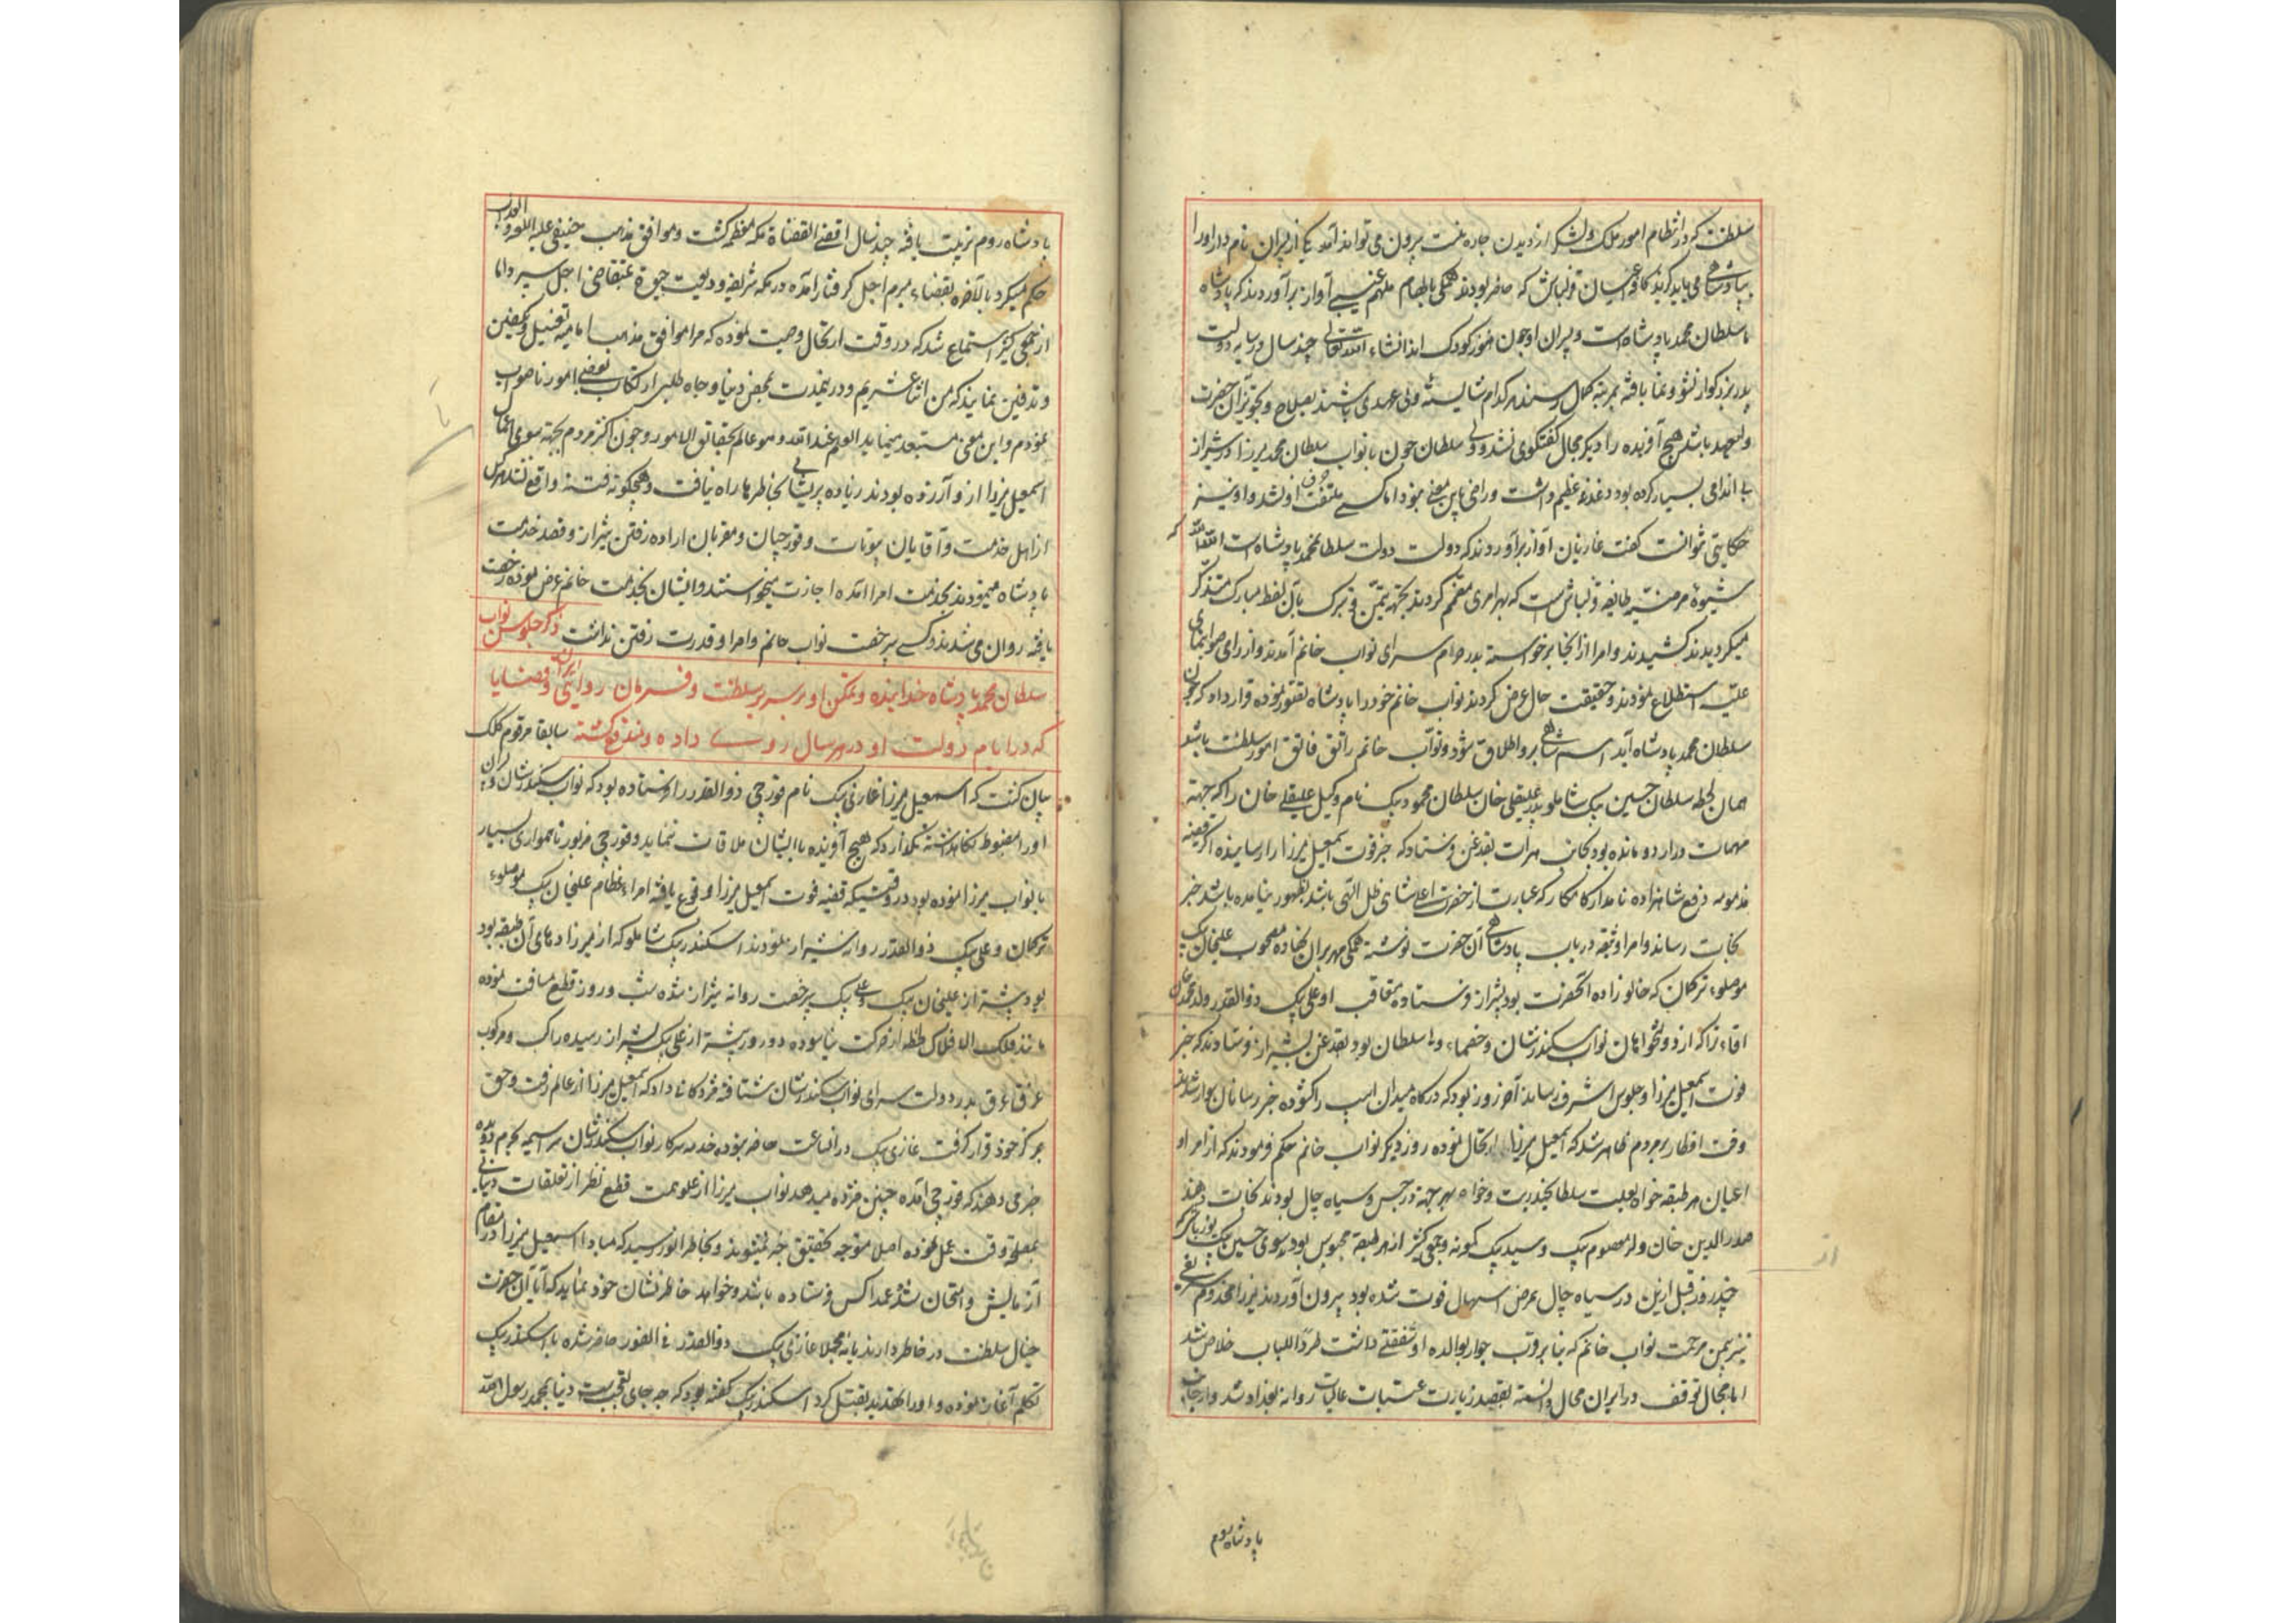 سلطنت که در انتظام امور ملک و لشکر از دیدن چاره نیست بیرون می تواند آمد یکی از پسران نام دار او را
بپادشاهی می باید گزید کافه اعیان قزلباش که حاضر بودند همگی بالهام ملهم غیبی آواز برآوردند که پادشاه
ما سلطان محمد پادشاه است و پسران او چون هنوز کودک اند انشاء الله تعالی چند سال در سایه دولت
پدر بزرگوار نشو و نما یافته بمرتبه کمال رسند هر کدام شایسته ولی عهدی باشند بصلاح و تجویز آن حضرت
ولیعهد باشد هیچ آفریده را دیگر مجال گفتگوی نشد و ولی سلطان چون با نواب سلطان محمد میرزا در شیراز
بی اندامی بسیار کرده بود دغدغه عظیم داشت و راضی باین معنی نبود اما کسی ملتفت حرف او نشد و او نیز
حکایتی نتوانست گفت غازیان آواز برآوردند که دولت دولت سلطان محمد پادشاه است الله الله که
شیوه مرضیه طایفه قزلباش است که بهر امری مصمم گردند بجهة تیمن و تبرک بآن لفظ مبارک متذکر
میگردیدند کشیدند و امرا از آنجا برخواسته بدر حرم سرای نواب خانم آمدند و از رای صوابنمای
علیه استطلاع نمودند و حقیقت حال عرض کردند نواب خانم خود را با پادشاه تصور نموده قرار داد که چون
سلطان محمد پادشاه آید اسم شاهی برو اطلاق شود و نواب خانم راتق و فاتق امور سلطنت باشد
همان لحظه سلطان حسین بیک شاملو پدر علیقلی خان سلطان محمود بیک نام وکیل علیقلی خان را که جهة
مهمات در اردو مانده بود بجانب هرات بقدغن فرستاد که خبر فوت اسمعیل میرزا را رسانیده اگر قضیه
مذمومه دفع شاهزاده نامدار کامکار که عبارت از حضرت اعلی شاهی ظل الهی باشد بظهور نیامده باشد خبر
نجات رساند و امرا وثیقه در باب پادشاهی آن حضرت نوشته همگی مهر بران نهاده مصحوب علیخان بیک
موصلوء ترکمان که خالوزاده آنحضرت بود بشیراز فرستاده متعاقب او علی بیک ذوالقدر ولد محمد خان
اقاء را که از دولتخواهان نواب سکندرشان و خصماء ولی سلطان بود بقدغن بشیراز فرستادند که خبر
فوت اسمعیل میرزا و جلوس اشرف رساند آخر روز بود که درگاه میدان اسب را گشوده خبر رسانان سوار شدند
وقت افطار بر مردم ظاهر شد که اسمعیل میرزا ارتحال نموده روز دیگر نواب خانم حکم فرمودند که از امرا و
اعیان هر طبقه خواه بعلت سلطان حیدریت و خواه بهر جهة در حبس و سیاه چال بودند نجات دهند
صدرالدین خان ولد معصوم بیک و سید بیک کمونه و جمعی کثیر از هر طبقه محبوس بودند سوی حسین بیک یوزباشی که
چند روز قبل ازین در سیاه چال بمرض اسهال فوت شده بود بیرون آوردند میرزا مخدوم شریفی
نیز بیمن مرحمت نواب خانم که بنابر قرب جوار بوالده او شفقتی داشت طردا للباب خلاص شد
اما مجال توقف در ایران محال دانسته بقصد زیارت عتبات عالیات روانه بغداد شد و از جانب
پادشاه روم
پادشاه روم تربیت یافته چند سال اقضی القضاة مکه معظمه گشت و موافق مذهب حنیفی علیه اللعنه و العذاب
حکم میکرد بالآخره بقضاء مبرم اجل گرفتار آمده در مکه شریفه ودیعت حیوة بمتقاضی اجل سپرد اما
از جمعی کثیر استماع شد که در وقت ارتحال وصیت نموده که مرا موافق مذهب امامیه تغسیل و تکفین
و تدفین نمایند که من اثنا عشریم و درینمدت بمحض دنیا و جاه طلبی ارتکاب بعضی امور ناصواب
نمودم و این معنی مستبعد مینماید العلم عند الله و هو عالم بحقایق الامور و چون اکثر مردم بجهة سوی اعمال
اسمعیل میرزا ازو آزرده بودند زیاده پریشانی بخاطرها راه نیافت و هیچگونه فتنه واقع نشد هر کس
از اهل خدمت و آقایان بیوتات و قورچیان و مقربان اراده رفتن شیراز و قصد خدمت
پادشاه مینمودند بخدمت امرا آمده اجازت میخواستند و ایشان بخدمت خانم عرض نموده رخصت
یافته روان می شدند و کسی بی رخصت نواب خانم و امرا و قدرت رفتن نداشت ذکر جلوس نواب
سلطان محمد پادشاه خدابنده و تمکن او بر سریر سلطنت و فرمان روایی ایران و قضایا
که در ایام دولت او در هر سال روی داده و بوقوع گشته سابقا مرقوم کلک
بیان گشت که اسمعیل میرزا غازی بیک نام قورچی ذوالقدر را فرستاده بود که نواب سکندرشان و
او را مضبوط نگاهداشته نگذارد که هیچ آفریده با ایشان ملاقات نماید و قورچی مزبور ناهمواری بسیار
با نواب میرزا نموده بود در وقتیکه قضیه فوت اسمعیل میرزا وقوع یافته امراء عظام علیخان بیک موصلوء
ترکمان و علی بیک ذوالقدر روانه شیراز نمودند اسکندر بیک شاملو که از میرزادهای آن طبقه بود
پیشتر از علیخان بیک و علی بیک بی رخصت روانه شیراز شده شب و روز قطع مسافت نموده
مانند فلک الافلاک لحظه از حرکت نیاسوده دو روز پیشتر از علی بیک بشیراز رسیده راکب و مرکوب
غرق عرق بدر دولت سرای نواب سکندرشان شتافته مژدگانی داد که اسمعیل میرزا از عالم رفت و حق
بمرکز خود قرار گرفت غازی بیک در آنساعت حاضر نبوده خدمه سرکار نواب سکندرشان سراسیمه بحرم دویده
خبر می دهند که قورچی آمده چنین مژده میدهد نواب میرزا از علو همت قطع نظر از تعلقات دنیائی
بمصلحة وقت عمل نموده اصلا متوجه تحقیق خبر نمیشوند و بخاطر انور رسید که مبادا اسمعیل میرزا در مقام
آزمایش و امتحان شده عمدا کس فرستاده باشد و خواهد خاطرنشان خود نماید که آیا آن حضرت
خیال سلطنت در خاطر دارند یا نه مجملا غازی بیک ذوالقدر فی الفور حاضر شده با اسکندر بیک
تکلم آغاز نموده و او را تهدید بقتل کرد اسکندر بیک گفته بود که چه جای تعجبست دنیا بمحمد رسول الله